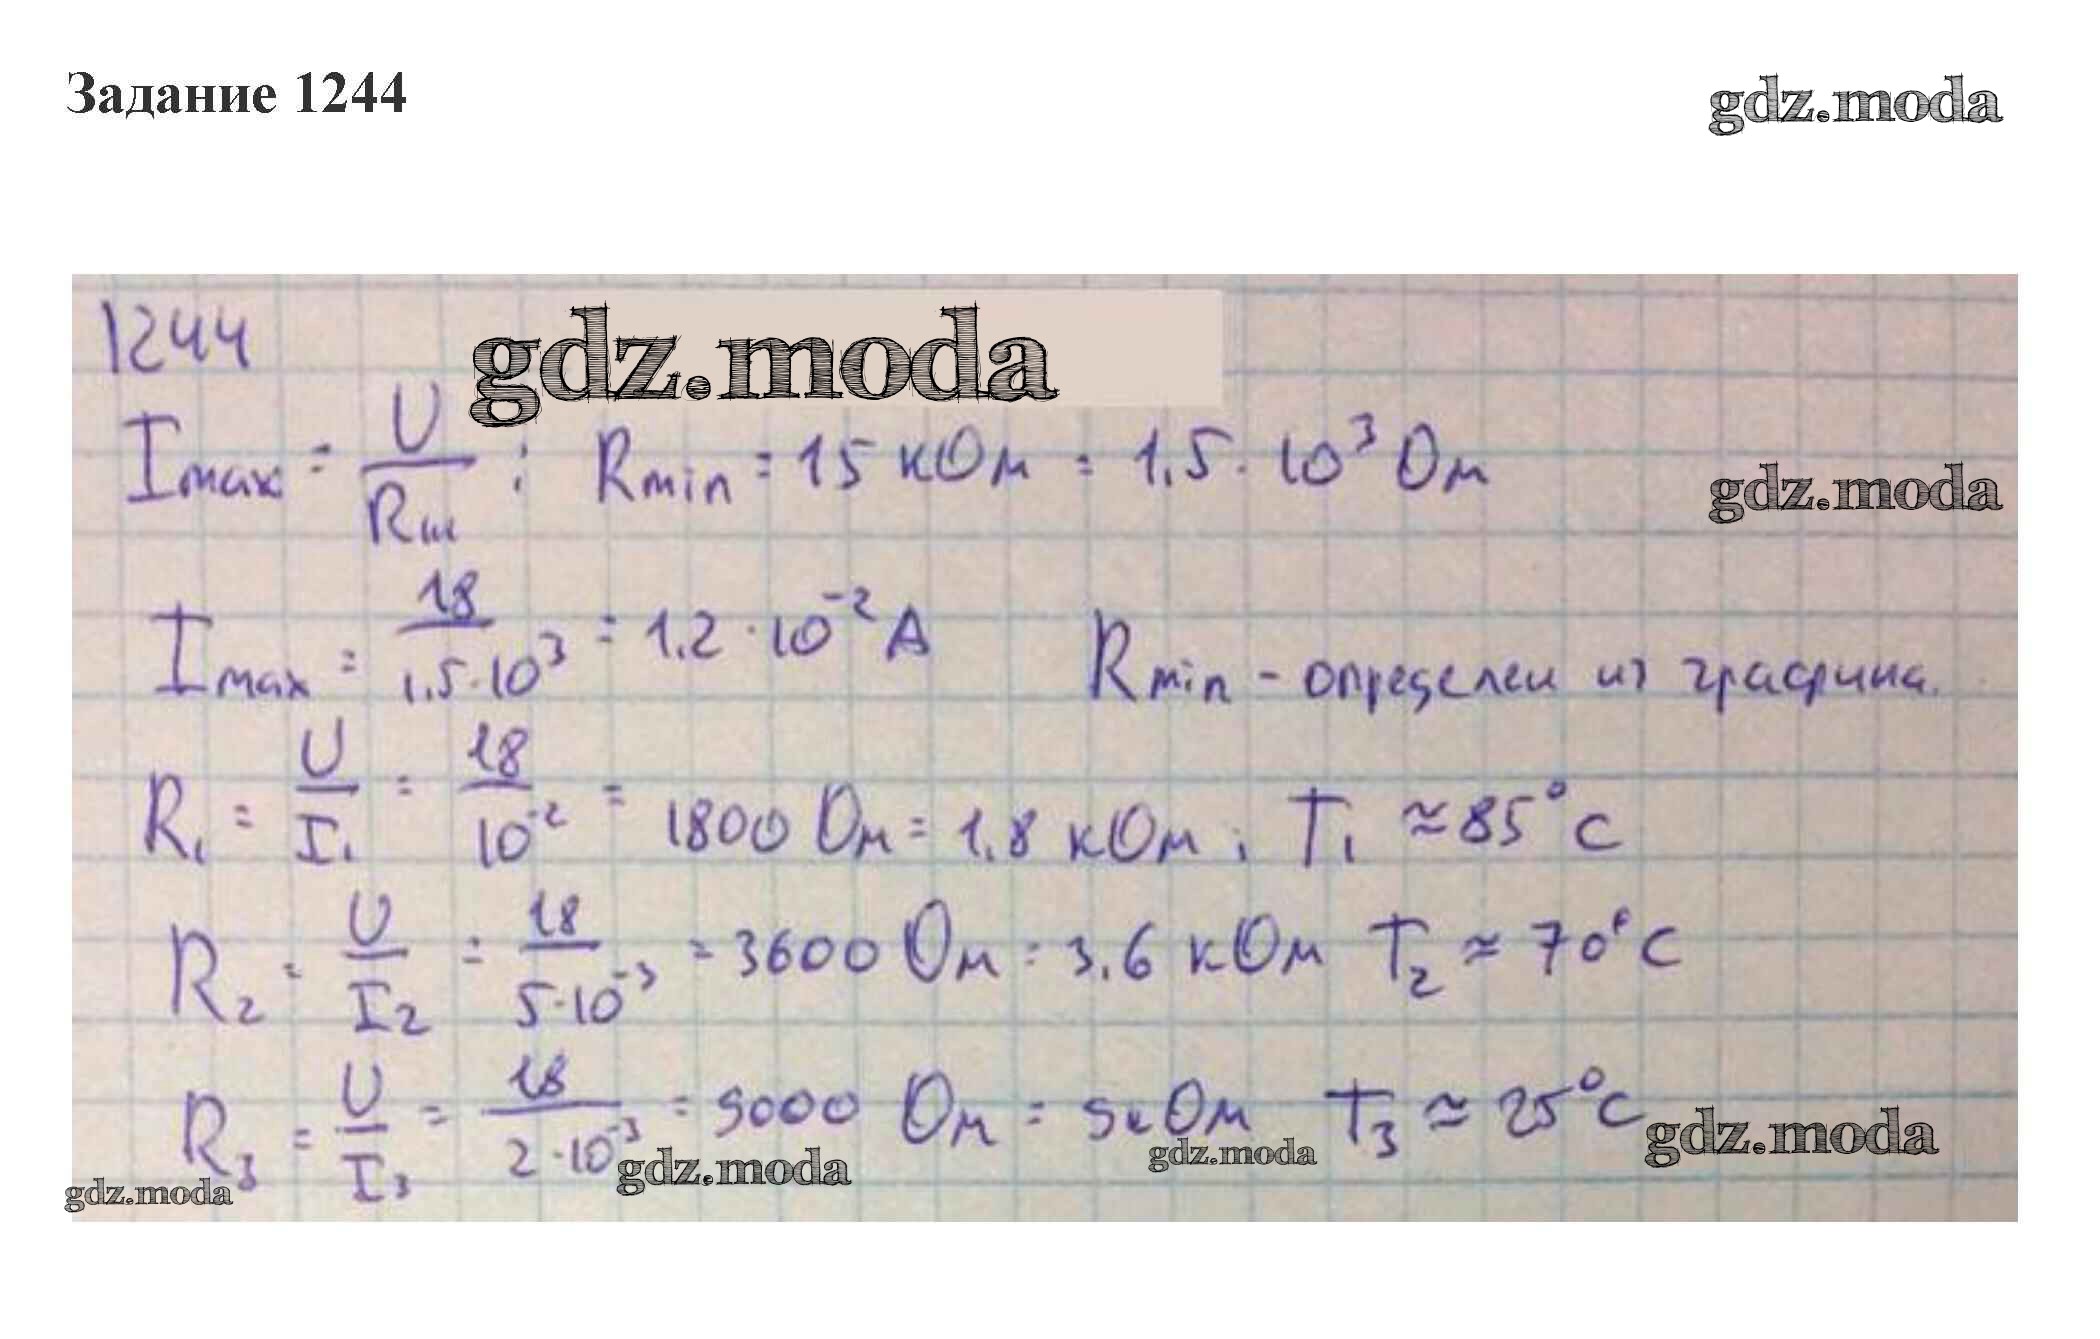 Задание 1244
gdz.moda
1244
gdz.moda
I max = U / Rш ; R min = 15 кОм = 1.5 · 10³ Ом
gdz.moda
I max = 18 / 1.5·10³ = 1.2 · 10⁻² А R min - определен из графика.
R₁ = U / I₁ = 18 / 10⁻² = 1800 Ом = 1.8 кОм ; T₁ ≈ 85°C
R₂ = U / I₂ = 18 / 5·10⁻³ = 3600 Ом = 3.6 кОм T₂ ≈ 70°C
R₃ = U / I₃ = 18 / 2·10⁻³ = 9000 Ом = 9кОм T₃ ≈ 25°C
gdz.moda
gdz.moda
gdz.moda
gdz.moda